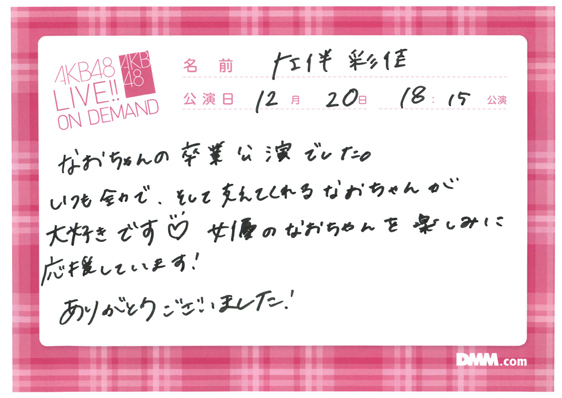 AKB48
LIVE!!
ON DEMAND
AKB
48
名前 佐伴 彩佳
公演日 12月 20日 18:15 公演
なおちゃんの卒業公演でした。
いつも全力で、そして支えてくれるなおちゃんが
大好きです♡ 女優のなおちゃんを楽しみに
応援しています!
ありがとうございました!
DMM.com